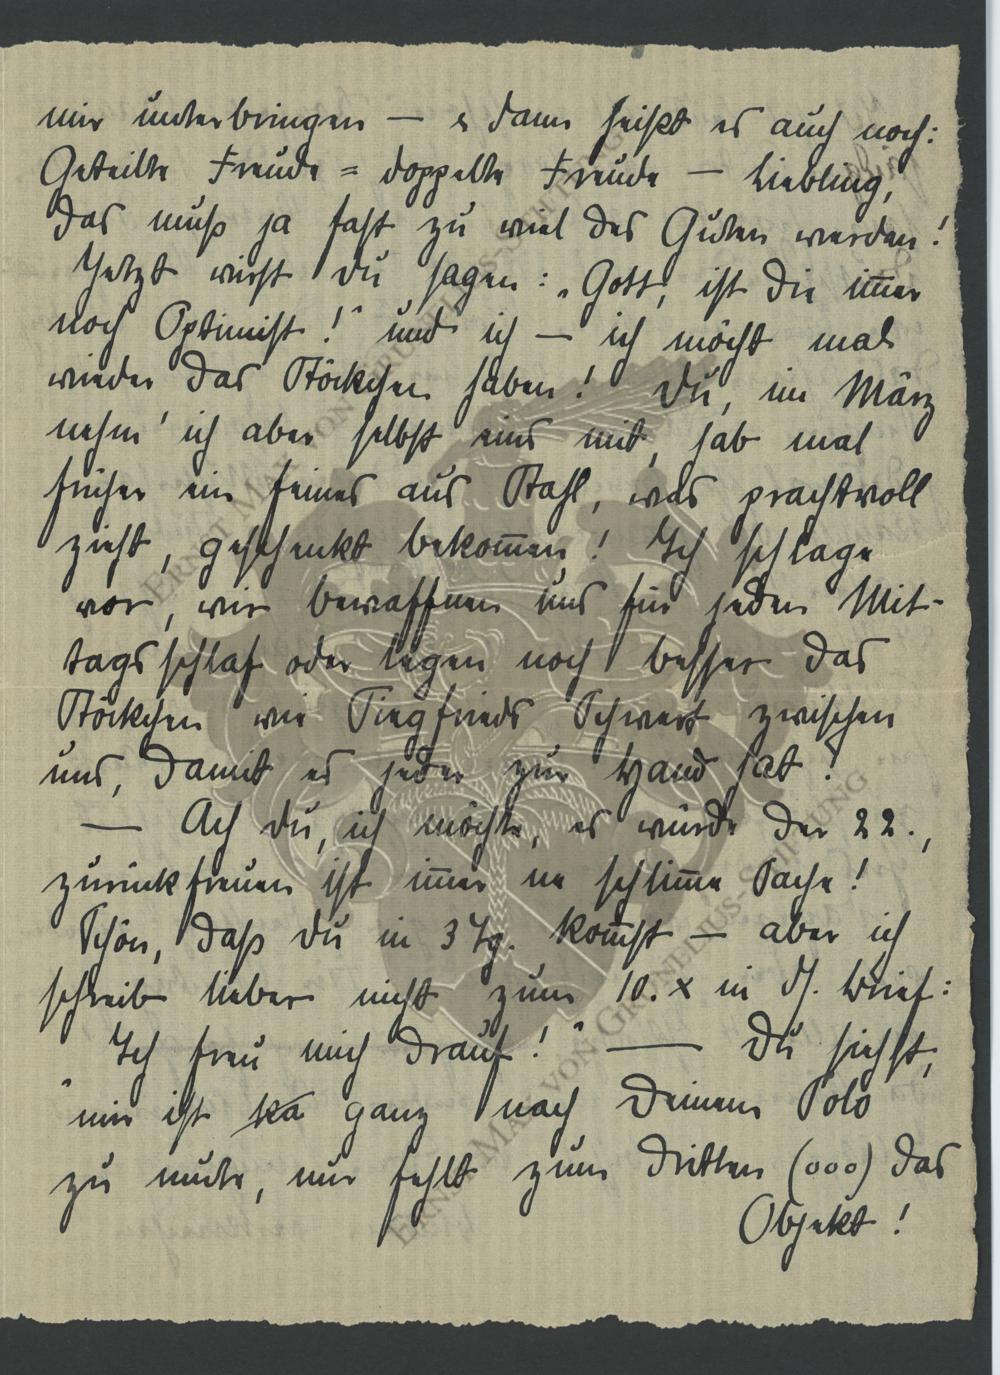 mir unterbringen — & dann heißt es auch noch:
Geteilte Freude = doppelte Freude — Liebling,
das muß ja fast zu viel des Guten werden!
Jetzt wirst Du sagen: „Gott, ist die im̄er
noch Optimist!" und ich — ich möcht mal
wieder das Stöckchen haben! Du, im März
nehm' ich aber selbst eins mit, hab mal
früher ein feines aus Stahl, was prachtvoll
zieht, geschenkt bekom̄en! Ich schlage
vor, wir bewaffnen uns für jeden Mit-
tagsschlaf oder legen noch besser das
Stöckchen wie Siegfrieds Schwert zwischen
uns, damit es jeder zur Hand hat!
— Ach Du, ich möchte, es würde der 22.,
zurückfreuen ist im̄er ne schlim̄e Sache!
Schön, daß Du in 3 Tg. kom̄st — aber ich
schreib lieber nicht zum 10. x in ds. Brief:
"Ich freu mich drauf!" — Du siehst,
mir ist ganz nach Deinem Solo
zu mute, nur fehlt zum dritten (ooo) das
Objekt!
ERNST MAX VON GRUNELIUS-STIFTUNG
ERNST MAX VON GRUNELIUS-STIFTUNG